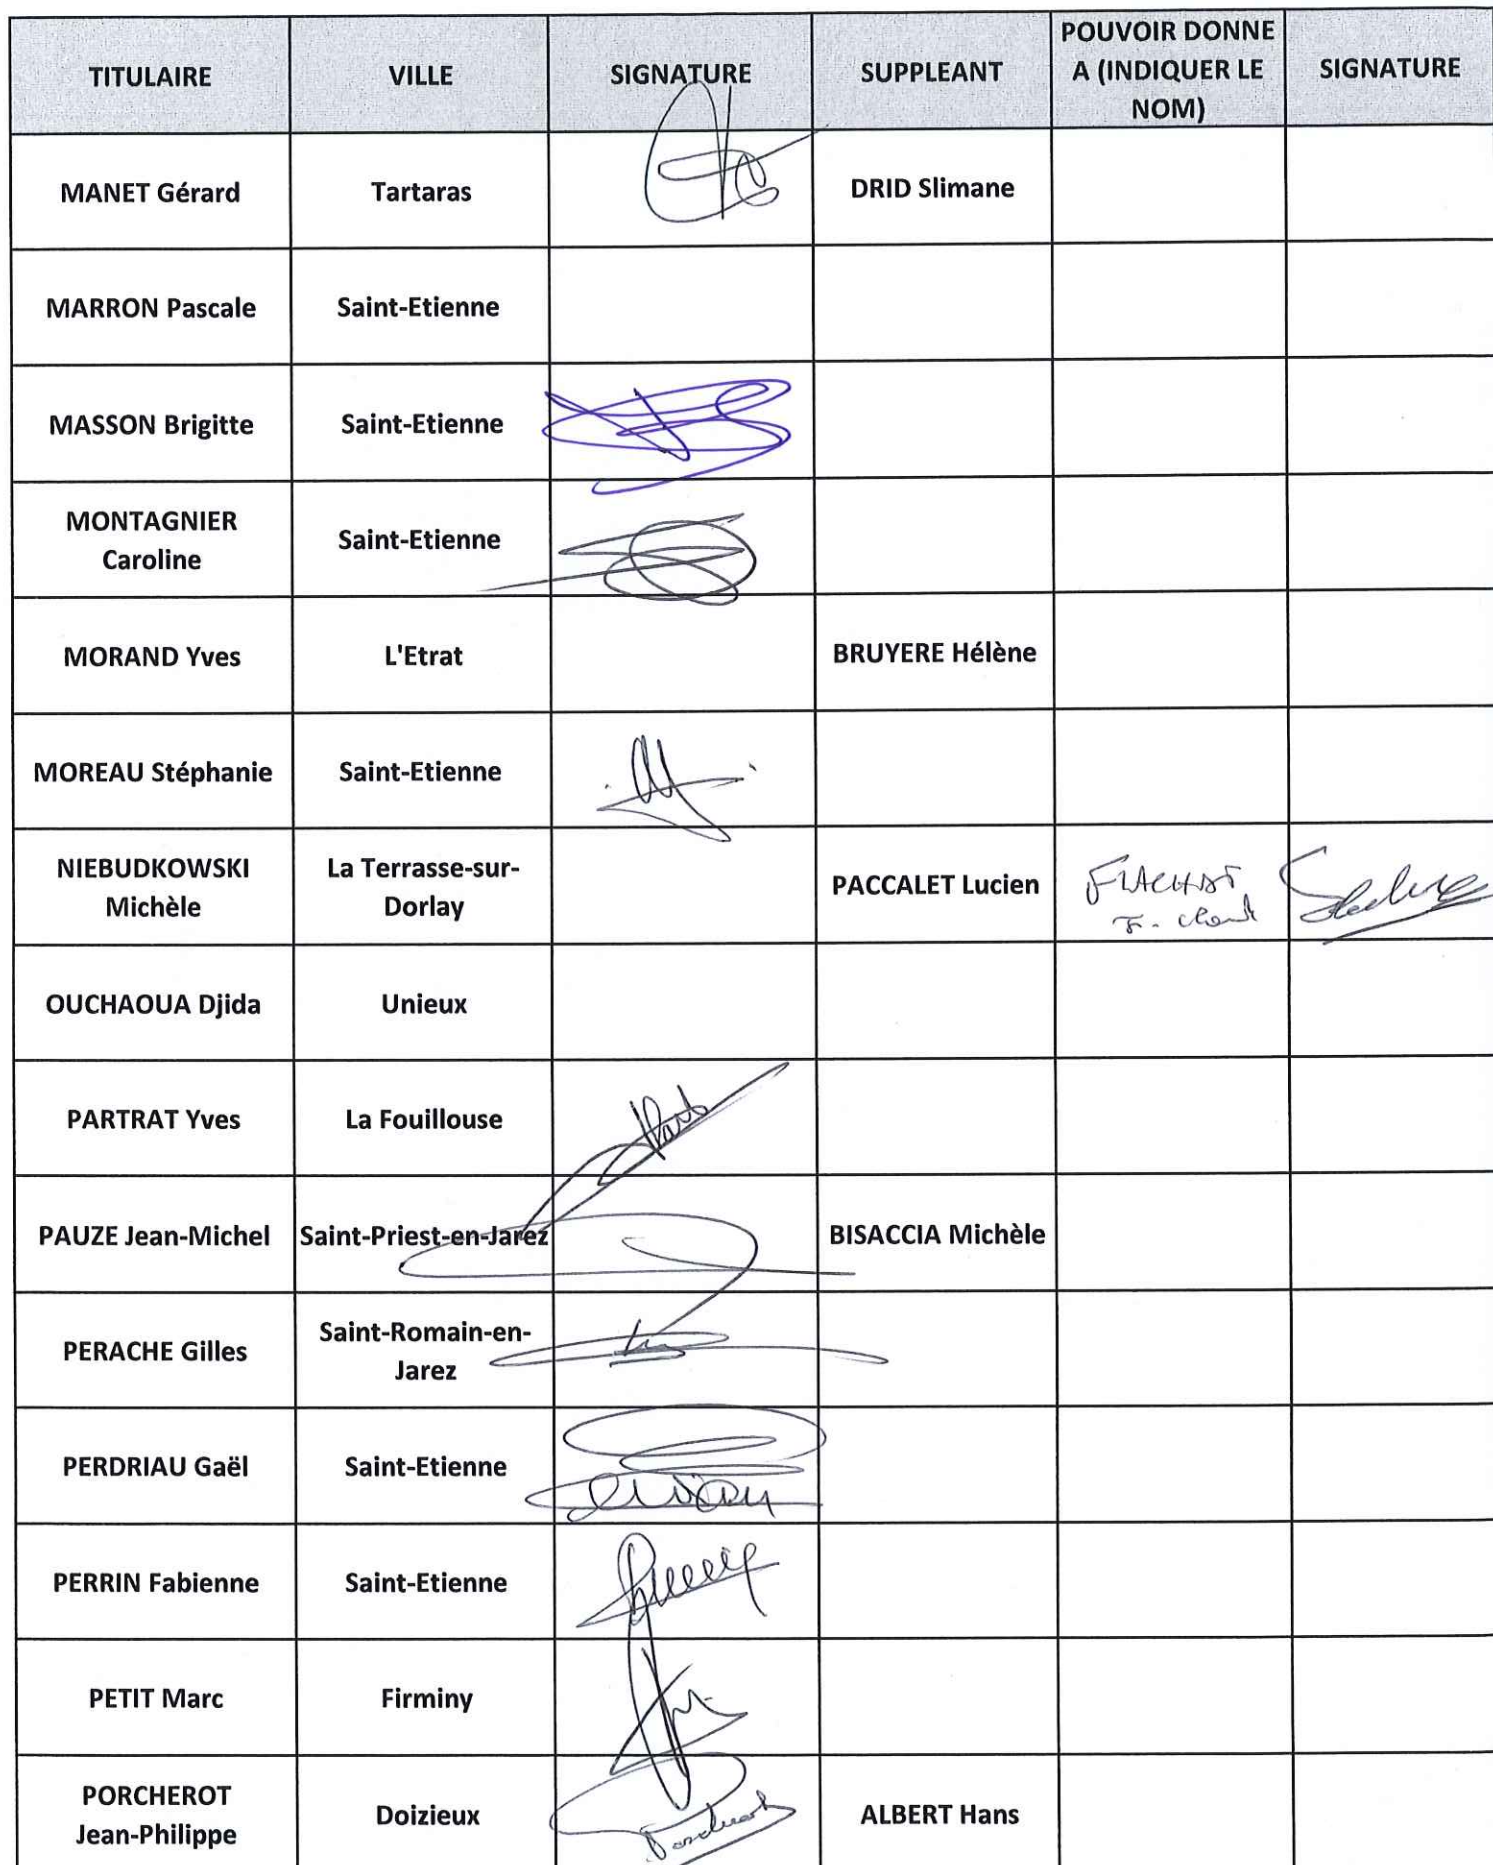 TITULAIRE VILLE SIGNATURE SUPPLEANT POUVOIR DONNE A (INDIQUER LE NOM) SIGNATURE
MANET Gérard Tartaras DRID Slimane
MARRON Pascale Saint-Etienne
MASSON Brigitte Saint-Etienne
MONTAGNIER Caroline Saint-Etienne
MORAND Yves L'Etrat BRUYERE Hélène
MOREAU Stéphanie Saint-Etienne
NIEBUDKOWSKI Michèle La Terrasse-sur-Dorlay PACCALET Lucien FLACHAT
OUCHAOUA Djida Unieux
PARTRAT Yves La Fouillouse
PAUZE Jean-Michel Saint-Priest-en-Jarez BISACCIA Michèle
PERACHE Gilles Saint-Romain-en-Jarez
PERDRIAU Gaël Saint-Etienne
PERRIN Fabienne Saint-Etienne
PETIT Marc Firminy
PORCHEROT Jean-Philippe Doizieux ALBERT Hans